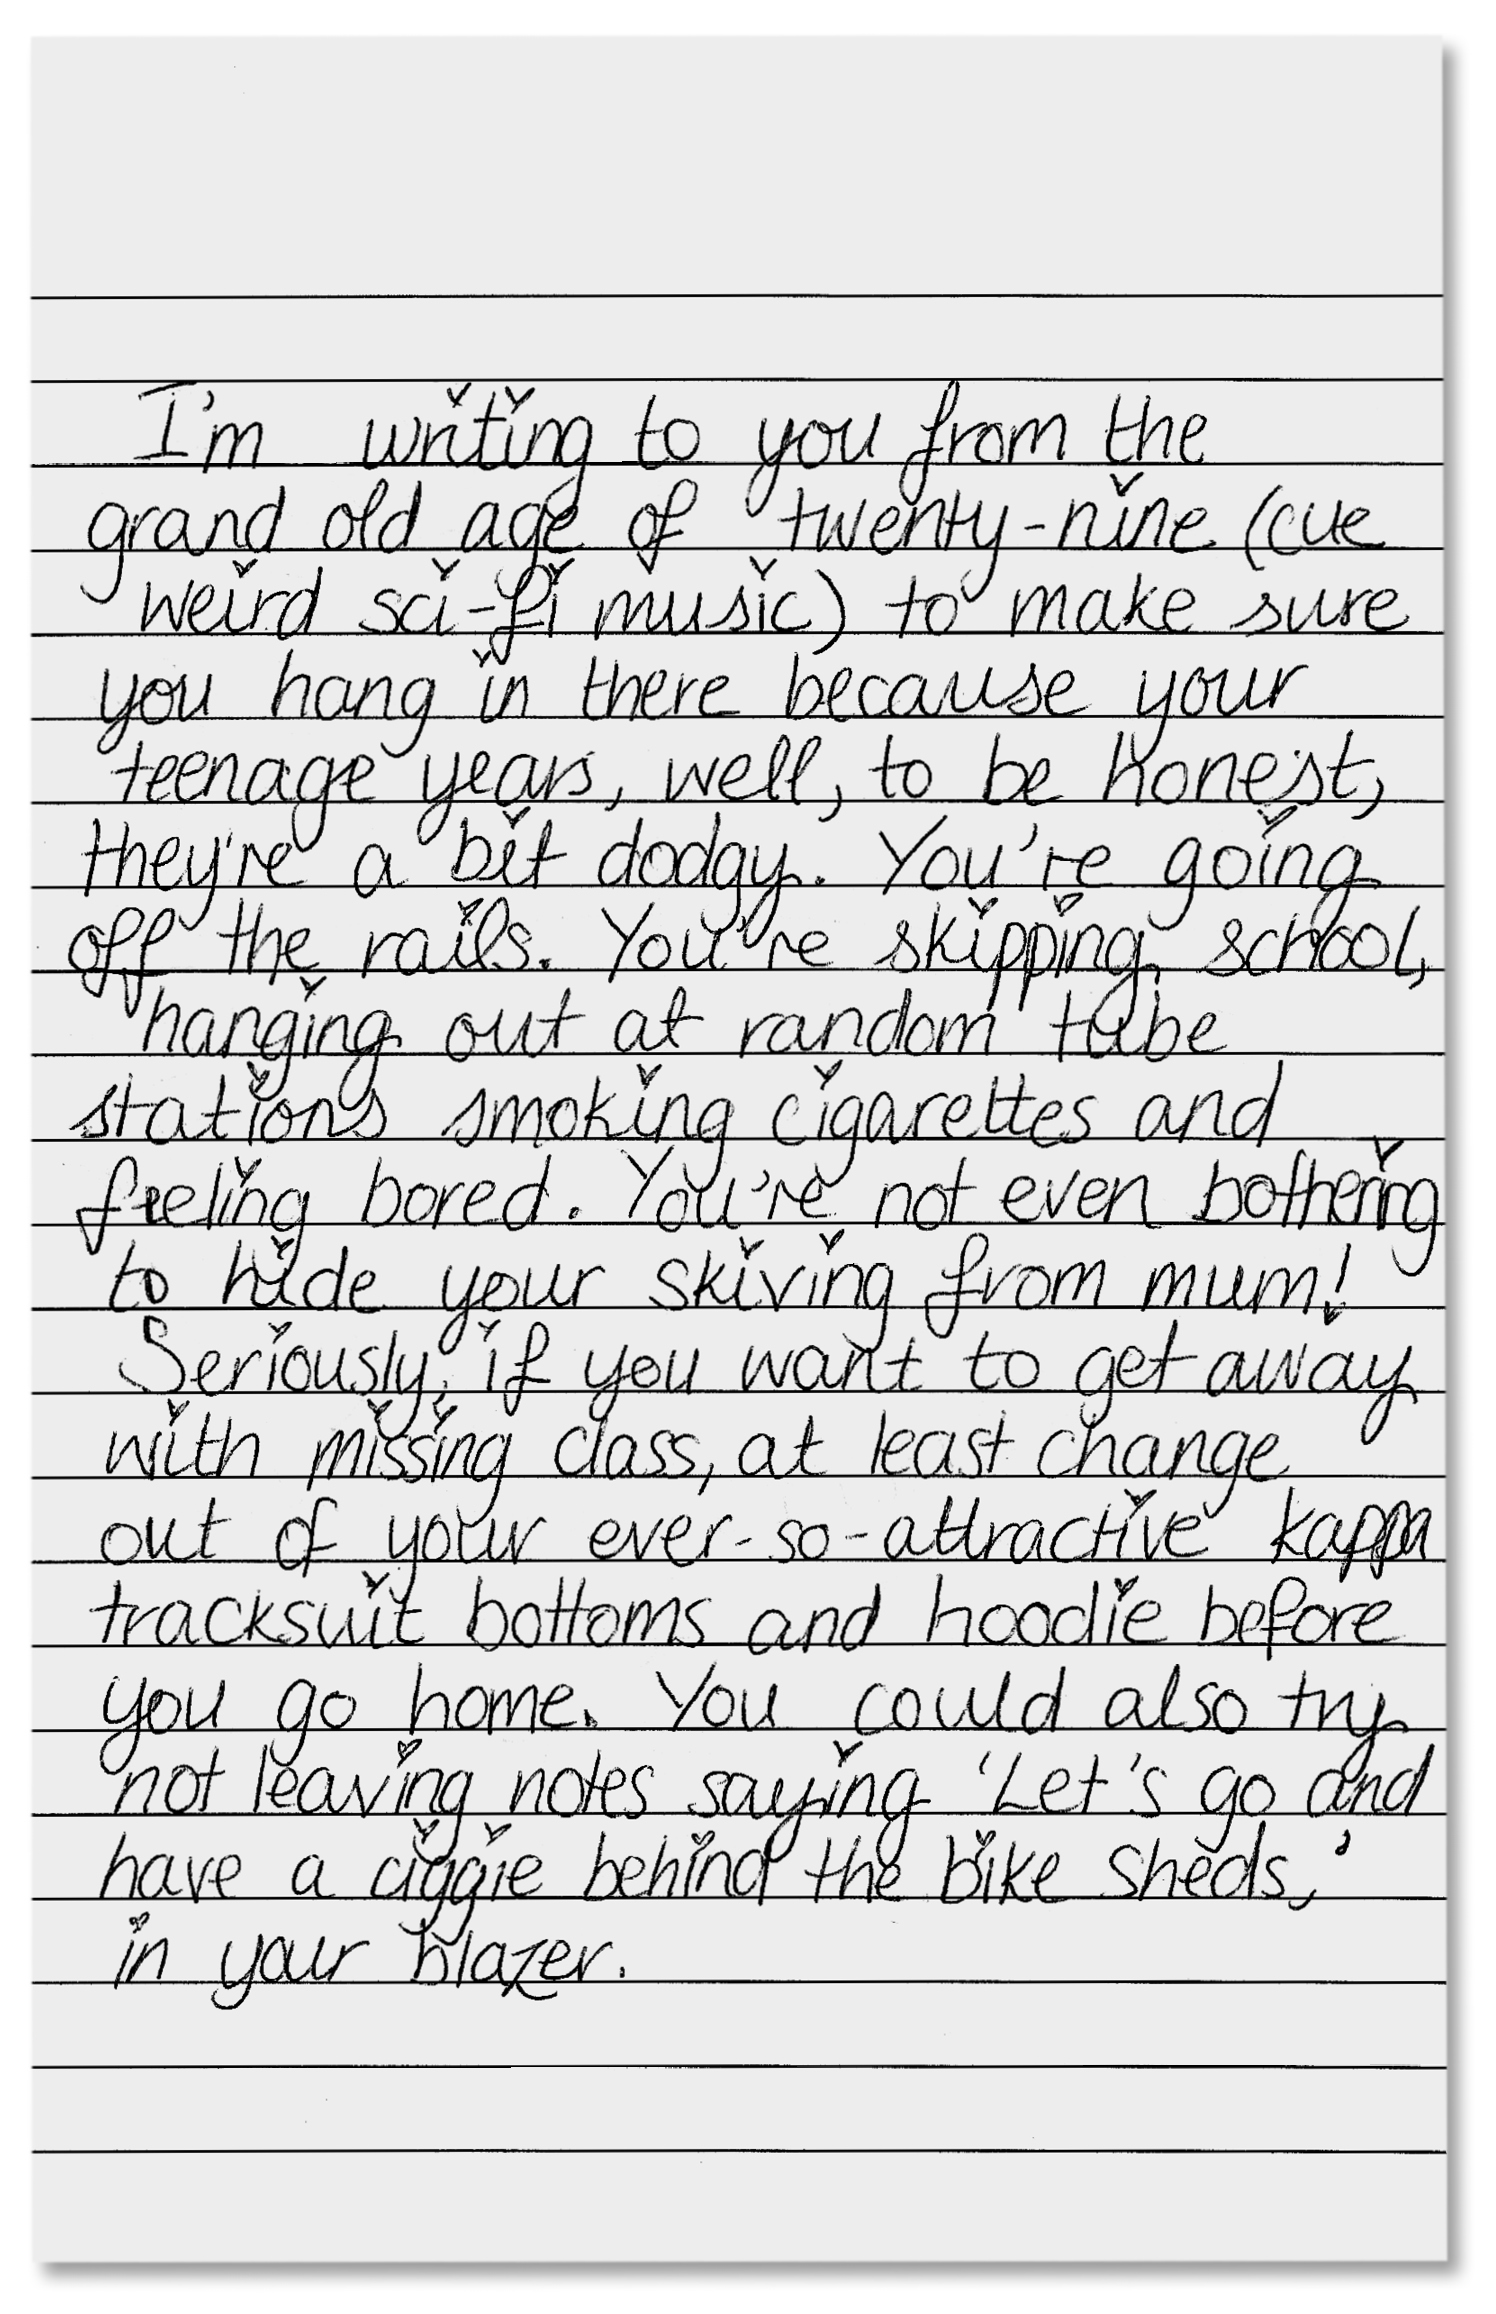 I'm writing to you from the
grand old age of twenty-nine (cue
weird sci-fi music) to make sure
you hang in there because your
teenage years, well, to be honest,
they're a bit dodgy. You're going
off the rails. You're skipping school,
hanging out at random tube
stations smoking cigarettes and
feeling bored. You're not even bothering
to hide your skiving from mum!
Seriously, if you want to get away
with missing class, at least change
out of your ever-so-attractive kappa
tracksuit bottoms and hoodie before
you go home. You could also try
not leaving notes saying 'Let's go and
have a ciggie behind the bike sheds,'
in your blazer.